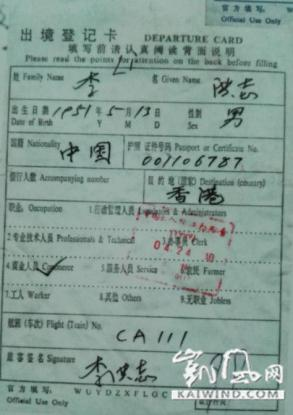 官方填写:
Official Use Only
出境登记卡 DEPARTURE CARD
填写前请认真阅读背面说明
Please read the points for attention on the back before filling
LI
姓 Family Name 李 名 Given Name 洪志
出生日期 1951 年 5 月 13 日 性别 男
Date of Birth Y M D Sex
国籍 Nationality 中国 护照 证件号码 Passport or Certificate No.
001106787
偕行人数 Accompanying number 目的地 (国家) Destination (country)
香港
职业: Occupation 1.行政管理人员 & Administrators
2.专业技术人员 Professionals & Technical 3.办事员 Clerk
4.商业人员 Commerce 5.服务人员 Service 6.农民 Farmer
7.工人 Worker 8.其他 Others 9.无职业 Jobless
航班 (车次) Flight (Train) No. CA111
旅客签名 Signature 李洪志
官方填写: WUYDZXFLGC
Official Use Only
凯风网
KAIWIND.COM